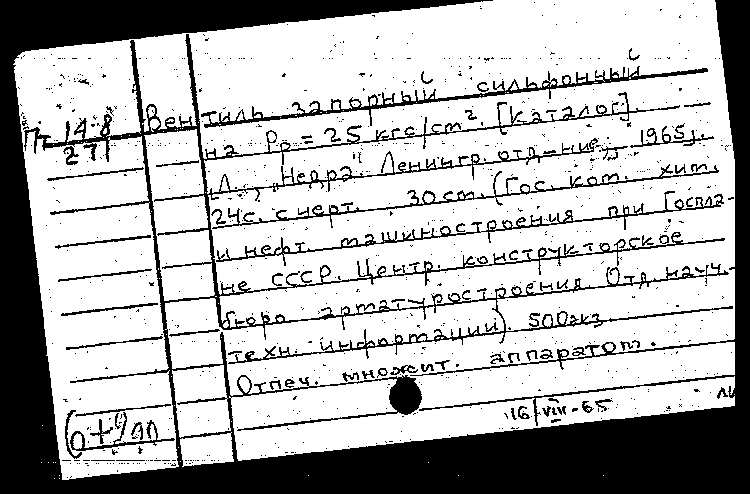 Пт 14-8
271
Вентиль запорный сильфонный
на Рр = 25 кгс/cm². [Каталог].
Л., „Недра" Ленингр. отд-ние, 1965.
24с. с черт. 30 cm. (Гос. ком. хим.
и нефт. машиностроения при Госпла-
не СССР. Центр. конструкторское
бюро арматуростроения. Отд. науч.-
техн. информации). 500 экз.
Отпеч. множит. аппаратом.
16/VIII-65